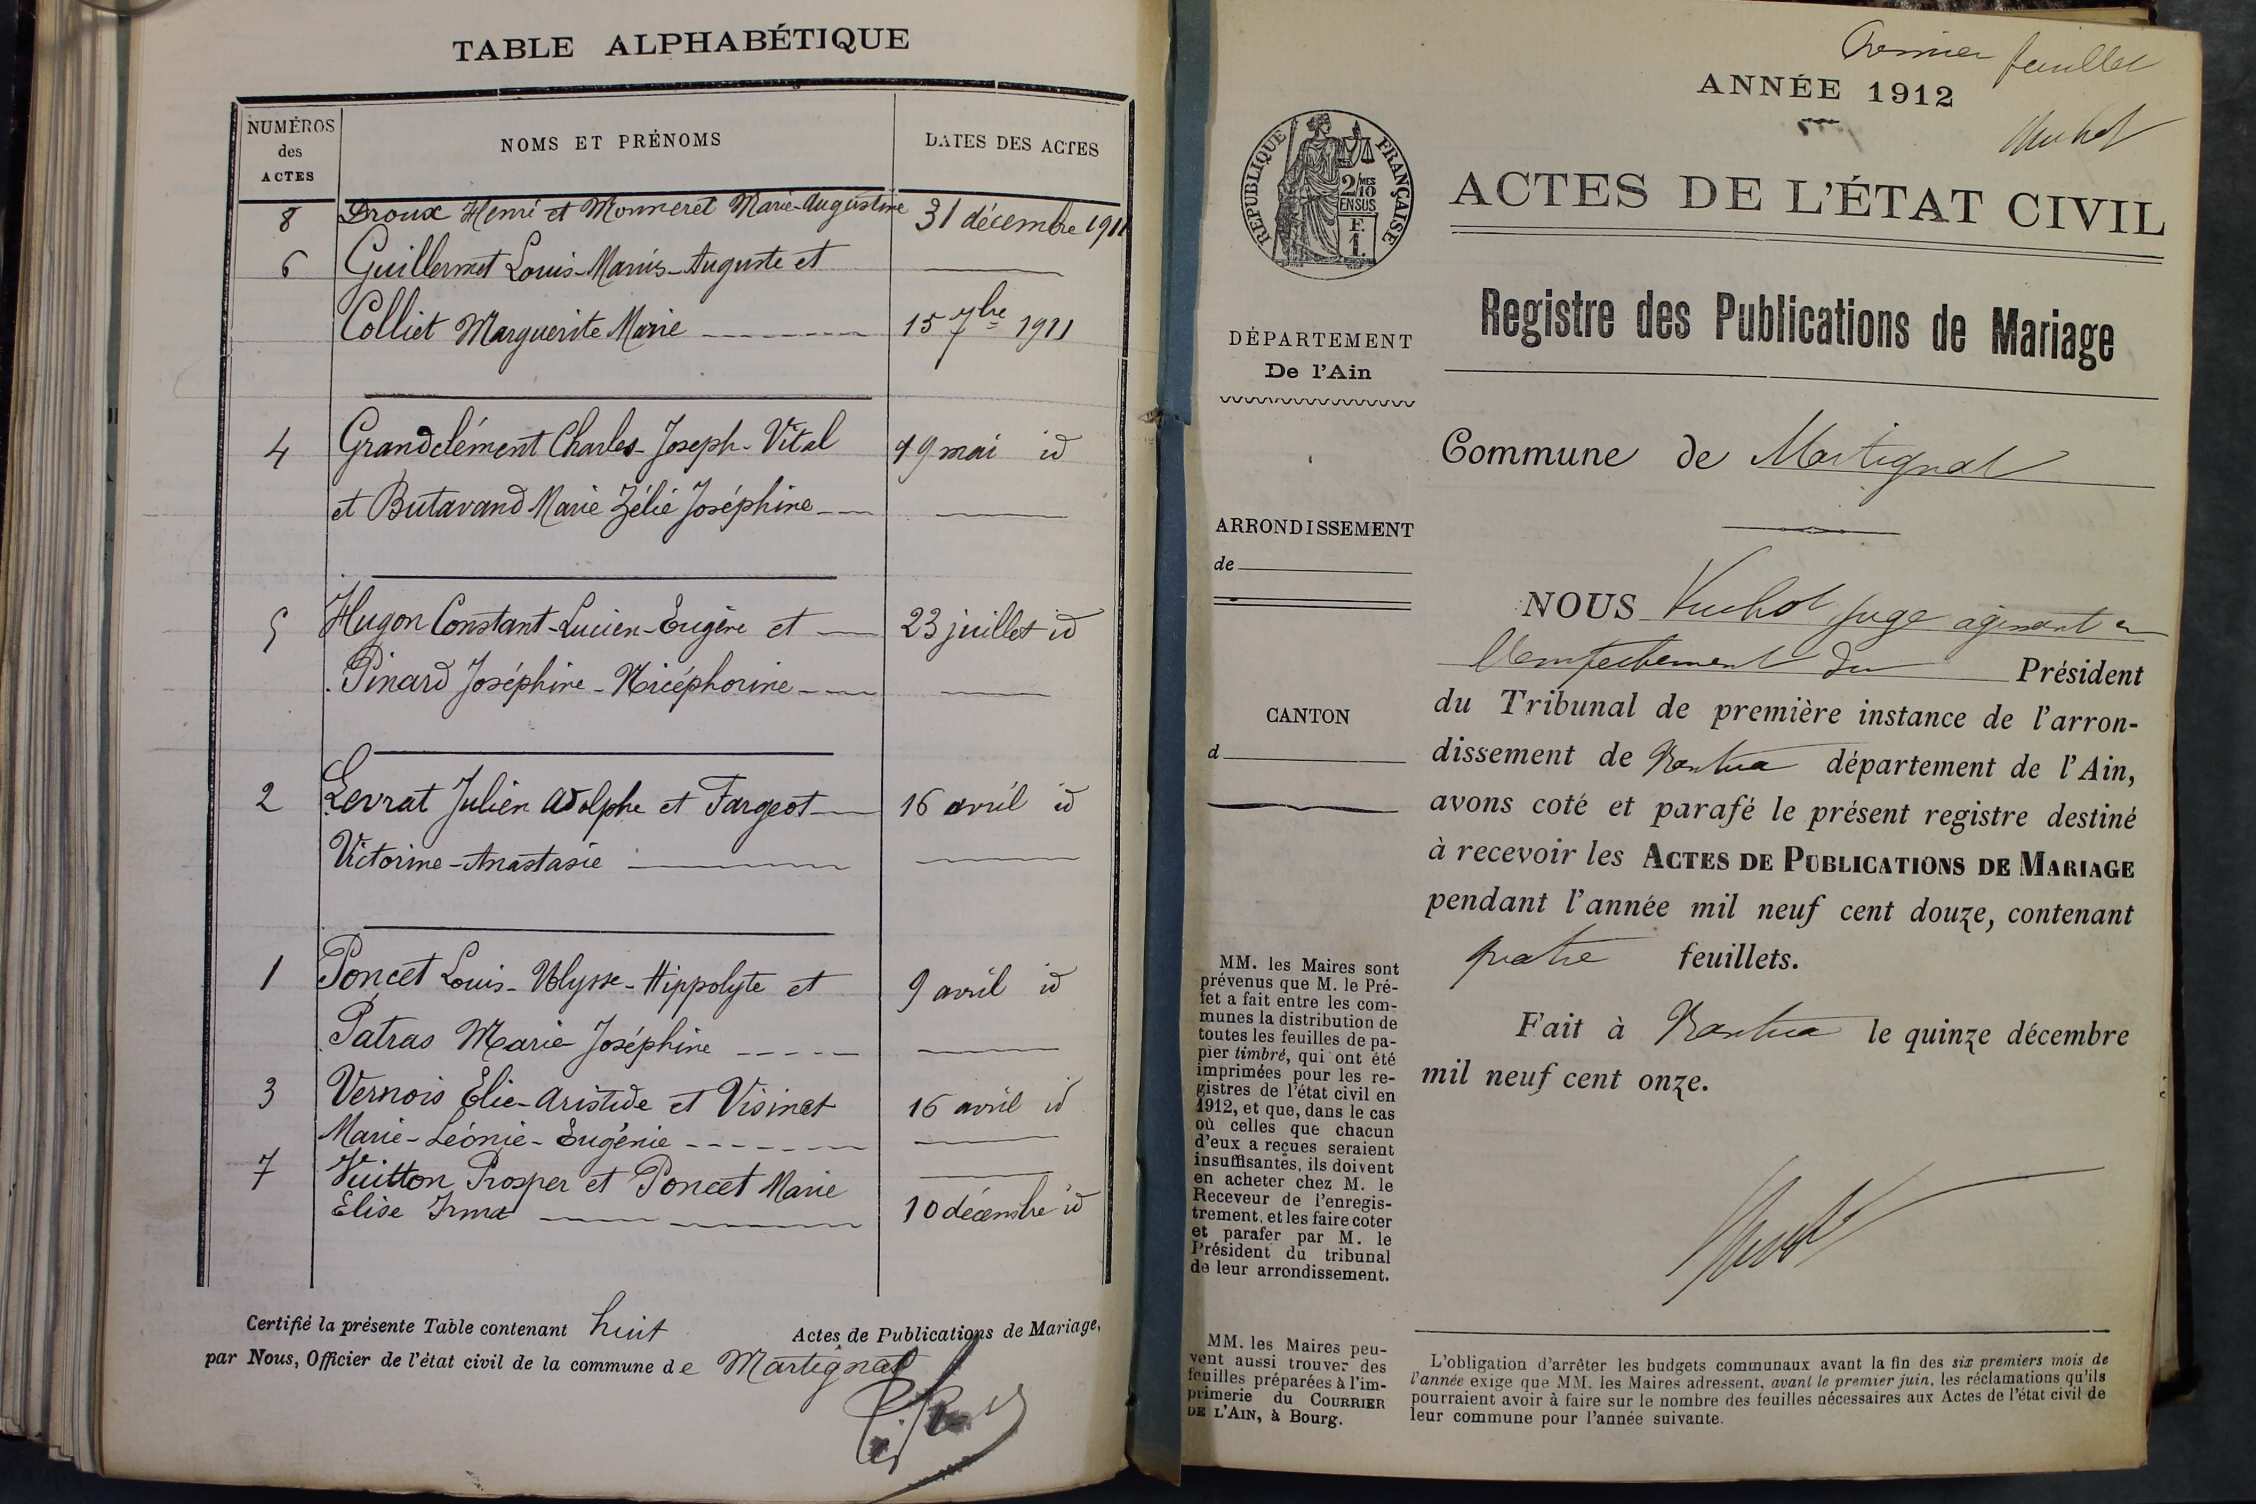 TABLE ALPHABÉTIQUE
NUMÉROS
des
ACTES
NOMS ET PRÉNOMS
DATES DES ACTES
8 Droux Henri et Monneret Marie-Augustine 31 décembre 1911
6 Guillermet Louis-Marius-Auguste et
Colliet Marguerite Marie 15 7bre 1911
4 Grandclément Charles-Joseph-Vital 19 mai id
et Butavand Marie Zélié Joséphine
5 Hugon Constant-Lucien-Eugène et 23 juillet id
Pinard Joséphine-Nicéphorine
2 Levrat Julien Adolphe et Fargeot 16 avril id
Victorine-Anastasie
1 Poncet Louis-Ulysse-Hippolyte et 9 avril id
Patras Marie Joséphine
3 Vernois Elie-Aristide et Visinet 16 avril id
Marie-Léonie-Eugénie
7 Vuitton Prosper et Poncet Marie
Elise Irma 10 décembre id
Certifié la présente Table contenant huit Actes de Publications de Mariage,
par Nous, Officier de l'état civil de la commune de Martignat
Premier feuillet
ANNÉE 1912
Vuchot
RÉPUBLIQUE FRANÇAISE
2/10 MES
EN SUS
F.
1.
ACTES DE L'ÉTAT CIVIL
Registre des Publications de Mariage
DÉPARTEMENT
De l'Ain
Commune de Martignat
ARRONDISSEMENT
de
CANTON
d
NOUS Vuchot juge agissant en
l'empêchement du Président
du Tribunal de première instance de l'arron-
dissement de Nantua département de l'Ain,
avons coté et parafé le présent registre destiné
à recevoir les ACTES DE PUBLICATIONS DE MARIAGE
pendant l'année mil neuf cent douze, contenant
quatre feuillets.
Fait à Nantua le quinze décembre
mil neuf cent onze.
Vuchot
MM. les Maires sont
prévenus que M. le Pré-
fet a fait entre les com-
munes la distribution de
toutes les feuilles de pa-
pier timbré, qui ont été
imprimées pour les re-
gistres de l'état civil en
1912, et que, dans le cas
où celles que chacun
d'eux a reçues seraient
insuffisantes, ils doivent
en acheter chez M. le
Receveur de l'enregis-
trement, et les faire coter
et parafer par M. le
Président du tribunal
de leur arrondissement.
MM. les Maires peu-
vent aussi trouver des
feuilles préparées à l'im-
primerie du COURRIER
DE L'AIN, à Bourg.
L'obligation d'arrêter les budgets communaux avant la fin des six premiers mois de
l'année exige que MM. les Maires adressent, avant le premier juin, les réclamations qu'ils
pourraient avoir à faire sur le nombre des feuilles nécessaires aux Actes de l'état civil de
leur commune pour l'année suivante.